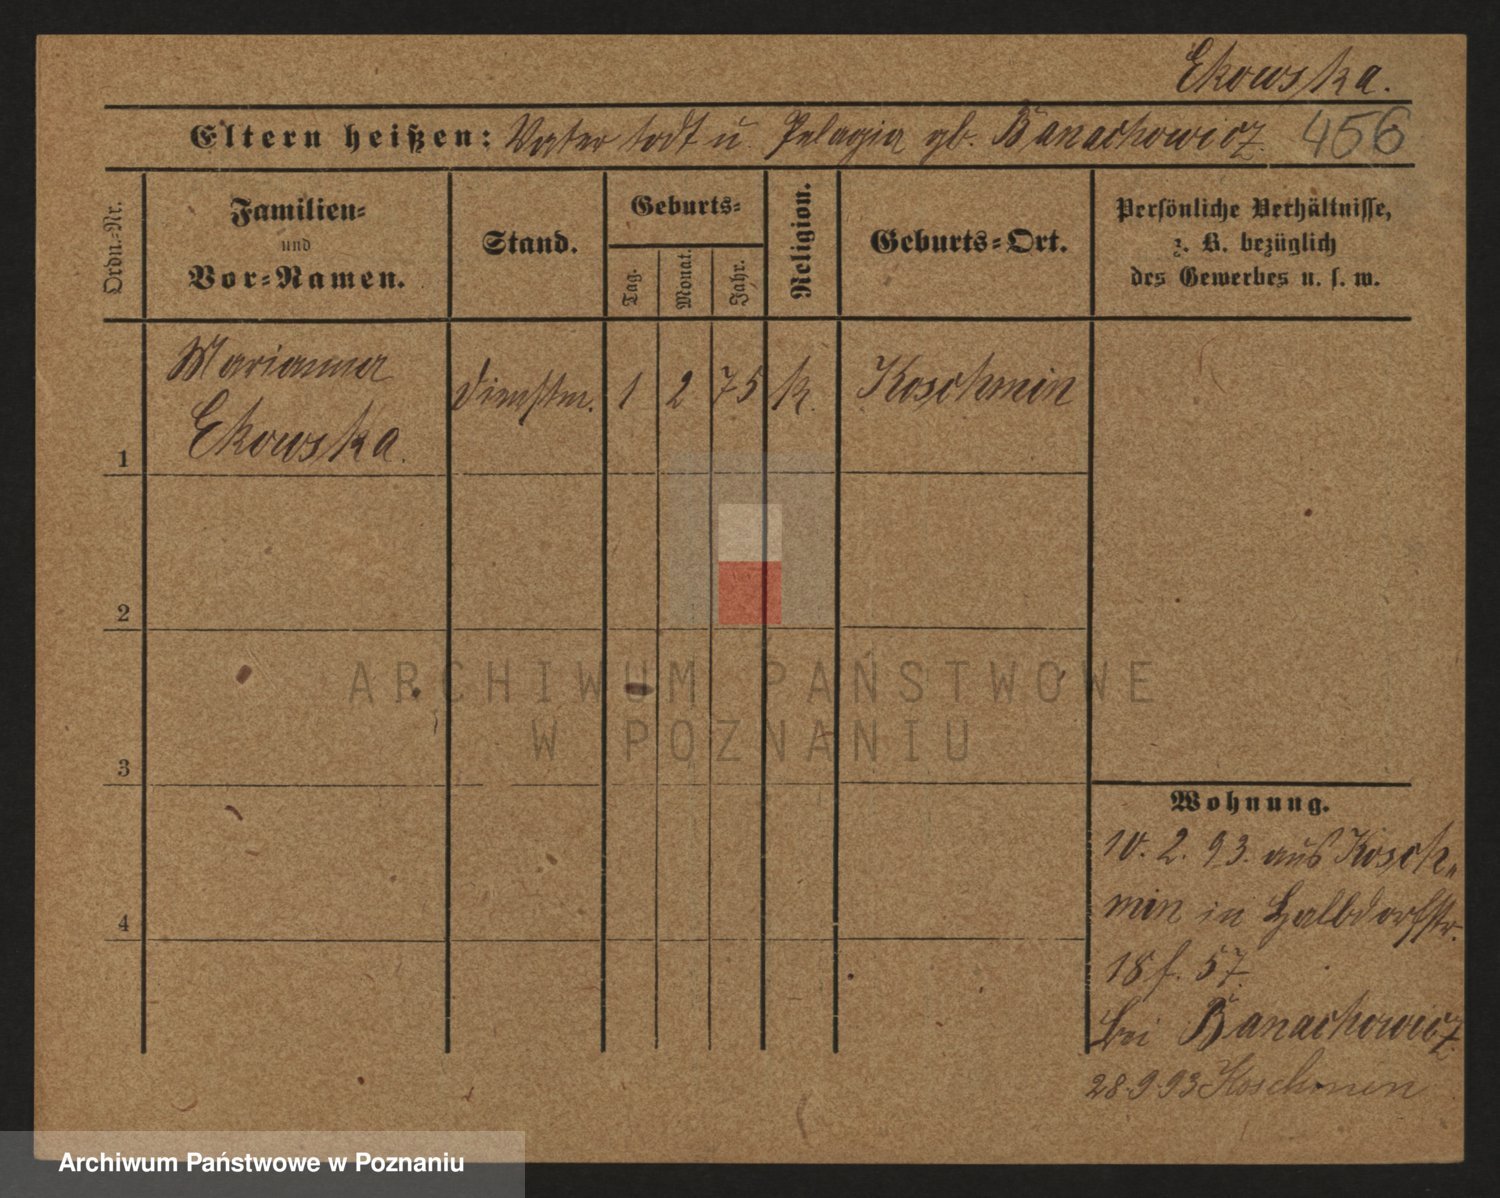 Ekowska.
Eltern heißen: Vater todt u. Pelagia gb. Banachowicz. 456
Ordn.-Nr.
Familien-
und
Vor-Namen.
Stand.
Geburts-
Tag.
Monat.
Jahr.
Religion.
Geburts-Ort.
Persönliche Verhältnisse,
z. B. bezüglich
des Gewerbes u. s. w.
Marianna
Ekowska.
Dienstm. 1 2 75 k. Koschmin
1
2
3
4
ARCHIWUM PAŃSTWOWE
W POZNANIU
Wohnung.
10. 2. 93. aus Kosch-
min in Halbdorfstr.
18 f. 57.
bei Banachowicz
28.9.93 Koschmin
Archiwum Państwowe w Poznaniu